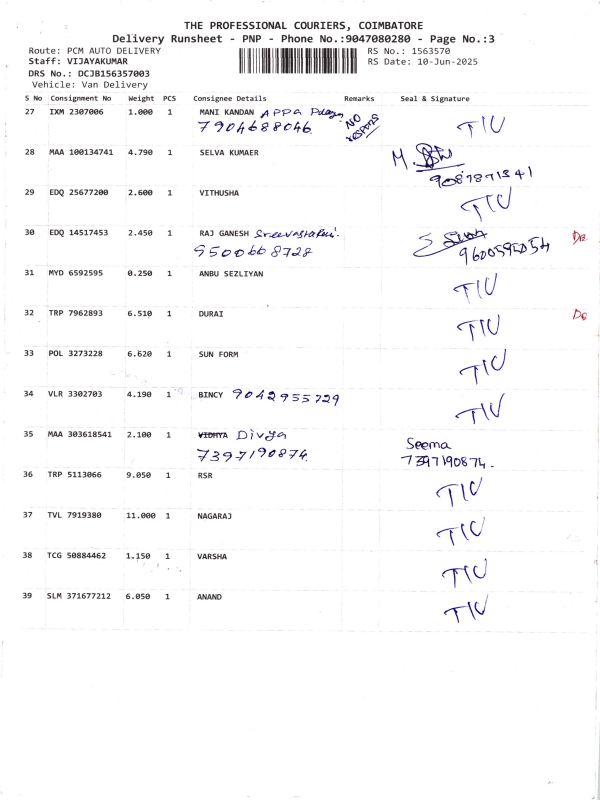 THE PROFESSIONAL COURIERS, COIMBATORE
Delivery Runsheet - PNP - Phone No.:9047080280 - Page No.:3
Route: PCM AUTO DELIVERY RS No.: 1563570
Staff: VIJAYAKUMAR RS Date: 10-Jun-2025
DRS No.: DCJB156357003
Vehicle: Van Delivery
S No Consignment No Weight PCS Consignee Details Remarks Seal & Signature
27 IXM 2307006 1.000 1 MANI KANDAN APPA NO T/U
7904688046
28 MAA 100134741 4.790 1 SELVA KUMAER M.
9087871341
29 EDQ 25677200 2.600 1 VITHUSHA T/U
30 EDQ 14517453 2.450 1 RAJ GANESH
9500668728 9600595054
31 MYD 6592595 0.250 1 ANBU SEZLIYAN T/U
32 TRP 7962893 6.510 1 DURAI T/U
33 POL 3273228 6.620 1 SUN FORM T/U
34 VLR 3302703 4.190 1 BINCY 9042955729 T/U
35 MAA 303618541 2.100 1 VIDHYA Divya Seema
7397190874. 7397190874.
36 TRP 5113066 9.050 1 RSR T/U
37 TVL 7919380 11.000 1 NAGARAJ T/U
38 TCG 50884462 1.150 1 VARSHA T/U
39 SLM 371677212 6.050 1 ANAND T/U